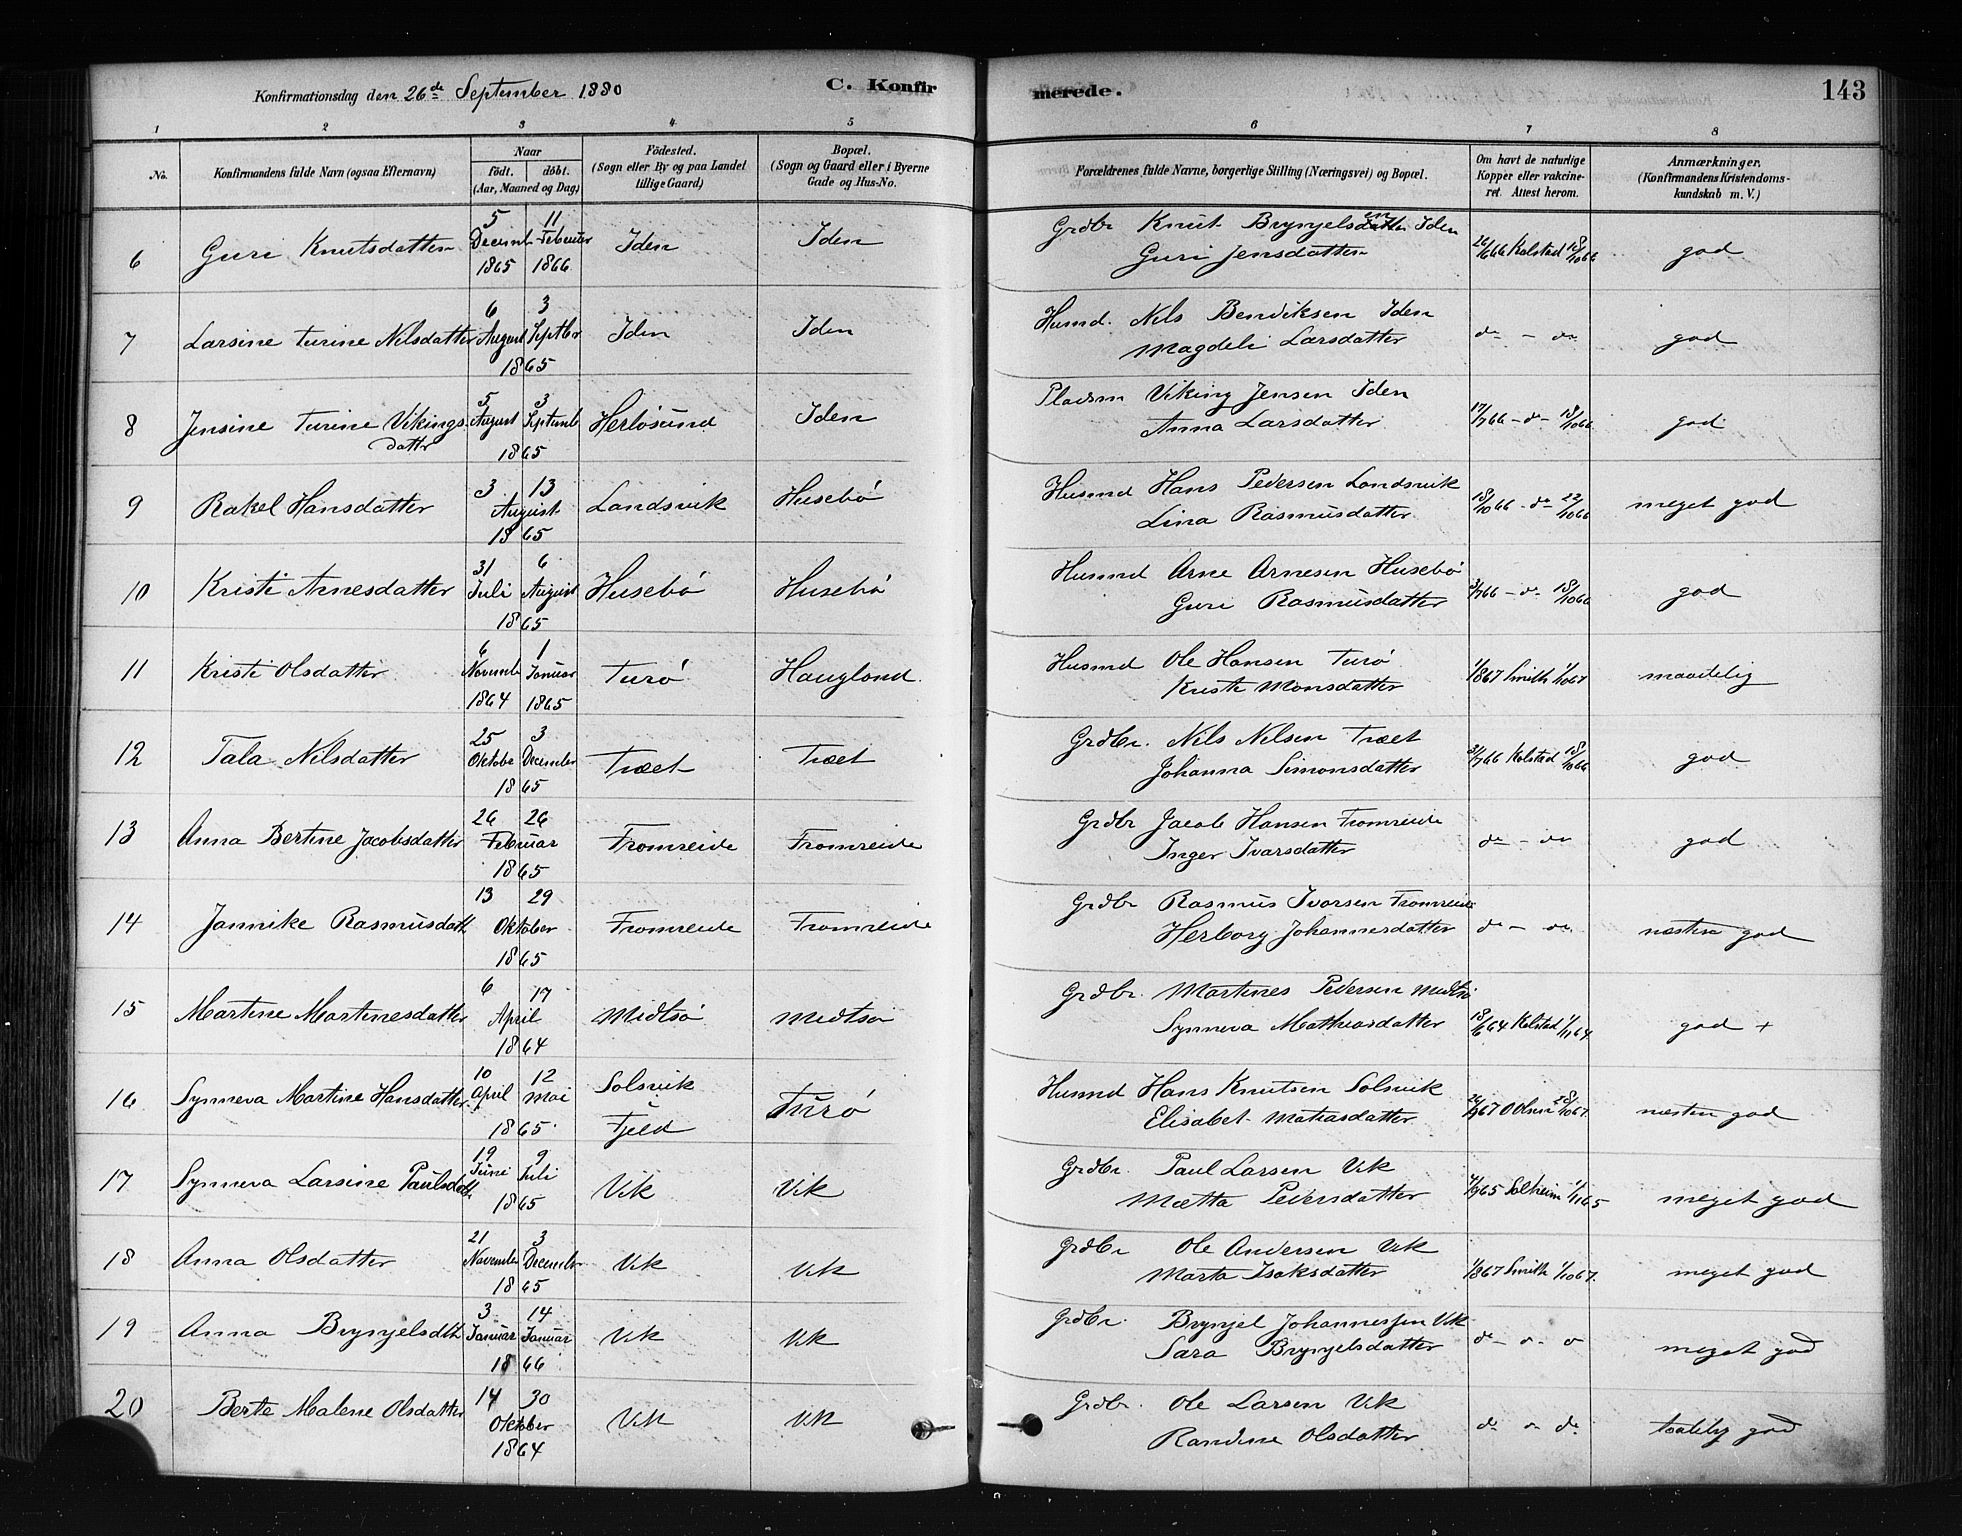 Konfirmationsdag den 26de September 1880
C. Konfirmerede.
143
1 2 3 4 5 6 7 8
No. Konfirmandens fulde Navn (ogsaa Efternavn) Naar födt. döbt. (Aar, Maaned og Dag) Födested. (Sogn eller By og paa Landet tillige Gaard) Bopæl. (Sogn og Gaard eller i Byerne Gade og Hus-No. Forældrenes fulde Navne, borgerlige Stilling (Næringsvei) og Bopæl. Om havt de naturlige Kopper eller vakcineret. Attest herom. Anmærkninger. (Konfirmandens Kristendomskundskab m. V.)
6 Guri Knutsdatter 5 Decemb 1865 11 Februar 1866 Iden Iden Grdbr Knut Brynjelsen Iden Guri Jensdatter 26/666 Kolstad 18/1066 god
7 Larsine Turine Nilsdatter 6 August 3 Septbr 1865 Iden Iden Husmd. Nils Bendiksen Iden Magdeli Larsdatter do - do god
8 Jensine Turine Vikingsdattr 5 August 3 Septemb 1865 Herløsund Iden Pladsm Viking Jensen Iden Anna Larsdatter 17/766 - do - 18/1066 god
9 Rakel Hansdatter 3 13 August 1865 Landsvik Husebø Husmd Hans Pedersen Landsvik Lina Rasmusdatter 18/1066 - do 22/1066 meget god
10 Kristi Arnesdatter 31 Juli 6 August 1865 Husebø Husebø Husmd Arne Arnesen Husebø Guri Rasmusdatter 31/766 - do - 18/1066 god
11 Kristi Olsdatter 6 Novemb 1864 1 Januar 1865 Turø Hauglond Husmd Ole Hansen Turø Kristi Monsdatter 1/867 Smith 1/1067 maadelig
12 Tala Nilsdatter 25 Oktobe 3 December 1865 Træet Træet Grdbr. Nils Nilsen Træet Johanna Simonsdatter 31/766 Kolstad 18/1066 god
13 Anna Bertine Jacobsdatter 26 26 Februar 1865 Fromreide Fromreide Grdbr Jacob Hansen Fromreide Inger Ivarsdatter do - do god
14 Jannike Rasmusdatt 13 29 Oktober 1865 Fromreide Fromreide Grdbr Rasmus Ivarsen Fromreide Herborg Johannesdatter do - do næsten god
15 Martine Martinesdatter 6 17 April 1864 Midtsø Midtsø Grdbr. Martines Pedersen Midtsø Synneva Mathiasdatter 18/664 Kolstad 1/1164 god +
16 Synneva Martine Hansdatter 10 April 12 Mai 1865 Solsvik i Fjeld Turø Husmd Hans Knutsen Solsvik Elisabet Matiasdatter OOlsen 28/1067 næsten god
17 Synneva Larsine Paulsdatt. 19 Juni 9 Juli 1865 Vik Vik Grdbr. Paul Larsen Vik Mætta Pedersdatter Solheim 1/1165 meget god
18 Anna Olsdatter 21 Novembe 3 December 1865 Vik Vik Grdbr Ole Andersen Vik Marta Isaksdatter 1/867 Smith 1/1067. meget god
19 Anna Brynjelsdtt 3 Januar 14 Januar 1866 Vik Vik Grdbr. Brynjel Johannessen Vik Sara Brynjelsdatter do - o - o meget god
20 Berte Malene Olsdatter 14 30 Oktober 1864 Vik Vik Grdbr. Ole Larsen Vik Randine Olsdatter do o do taalelig god